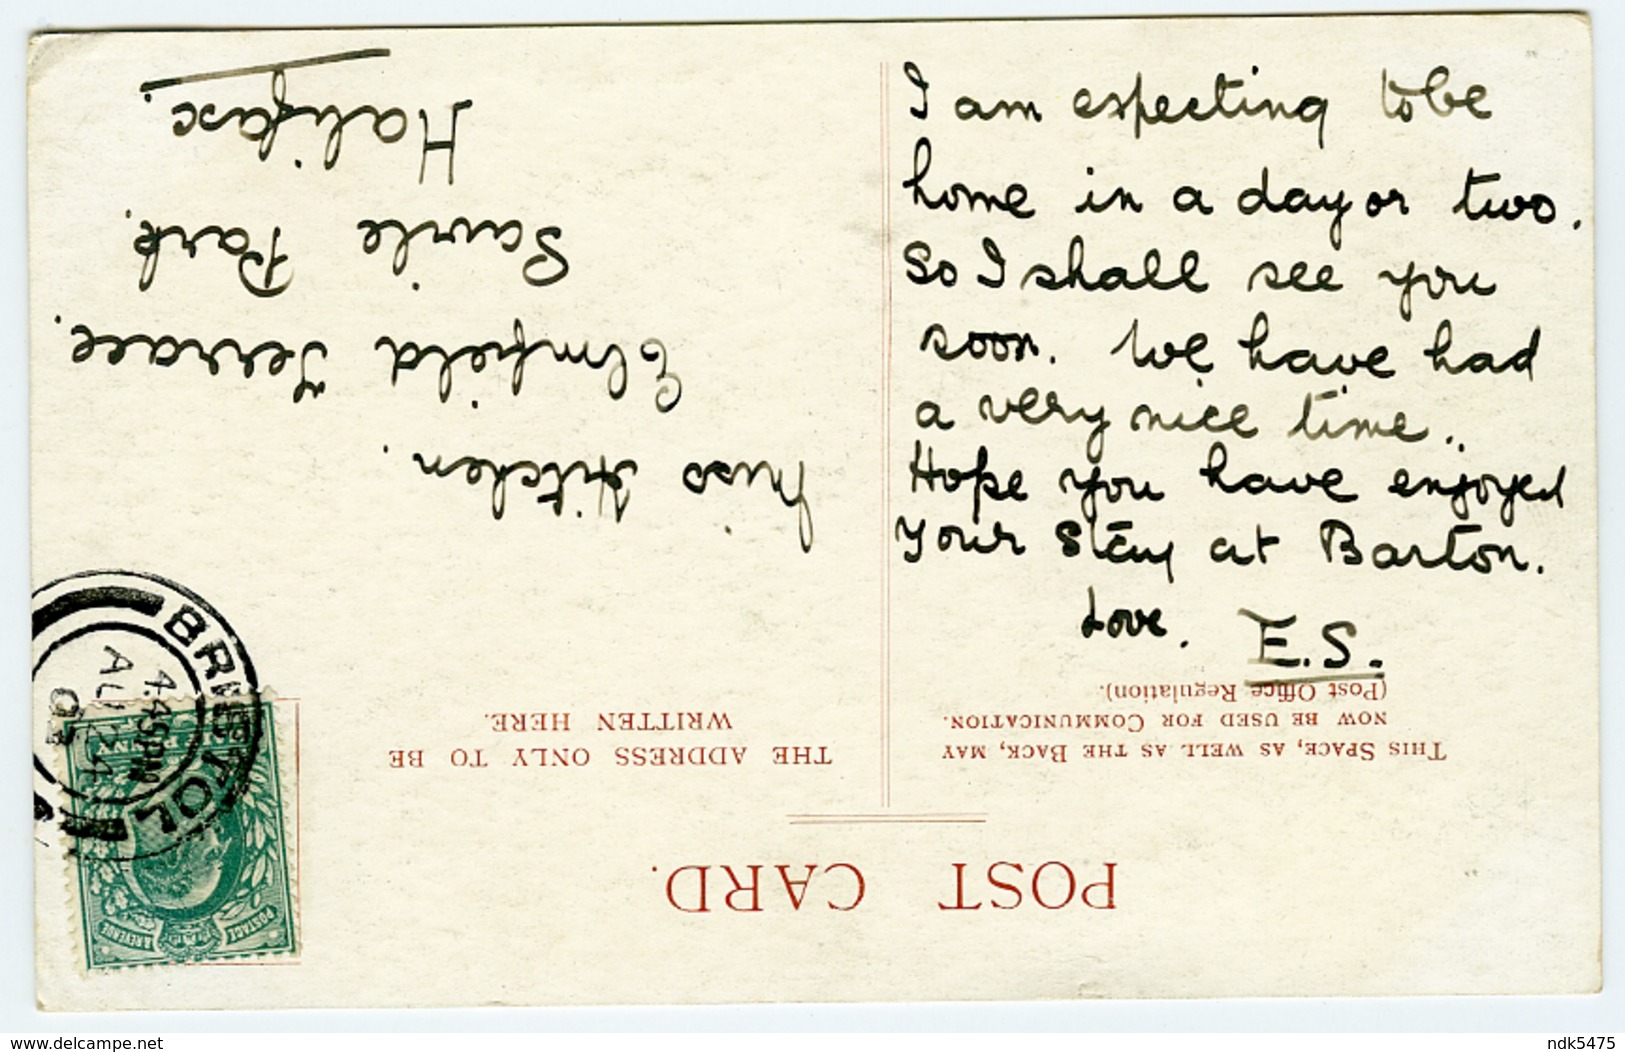 I am expecting to be
home in a day or two.
So I shall see you
soon. We have had
a very nice time..
Hope you have enjoyed
Your Stay at Barton.
Love. E.S.
POST CARD.
THIS SPACE, AS WELL AS THE BACK, MAY
NOW BE USED FOR COMMUNICATION.
(Post Office Regulation).
THE ADDRESS ONLY TO BE
WRITTEN HERE.
Miss Hitchen.
Elmfield Terrace.
Savile Park.
Halifax.
BRISTOL
4.45PM
AU 24
POSTAGE
& REVENUE
PENNY
www.delcampe.net
ndk5475